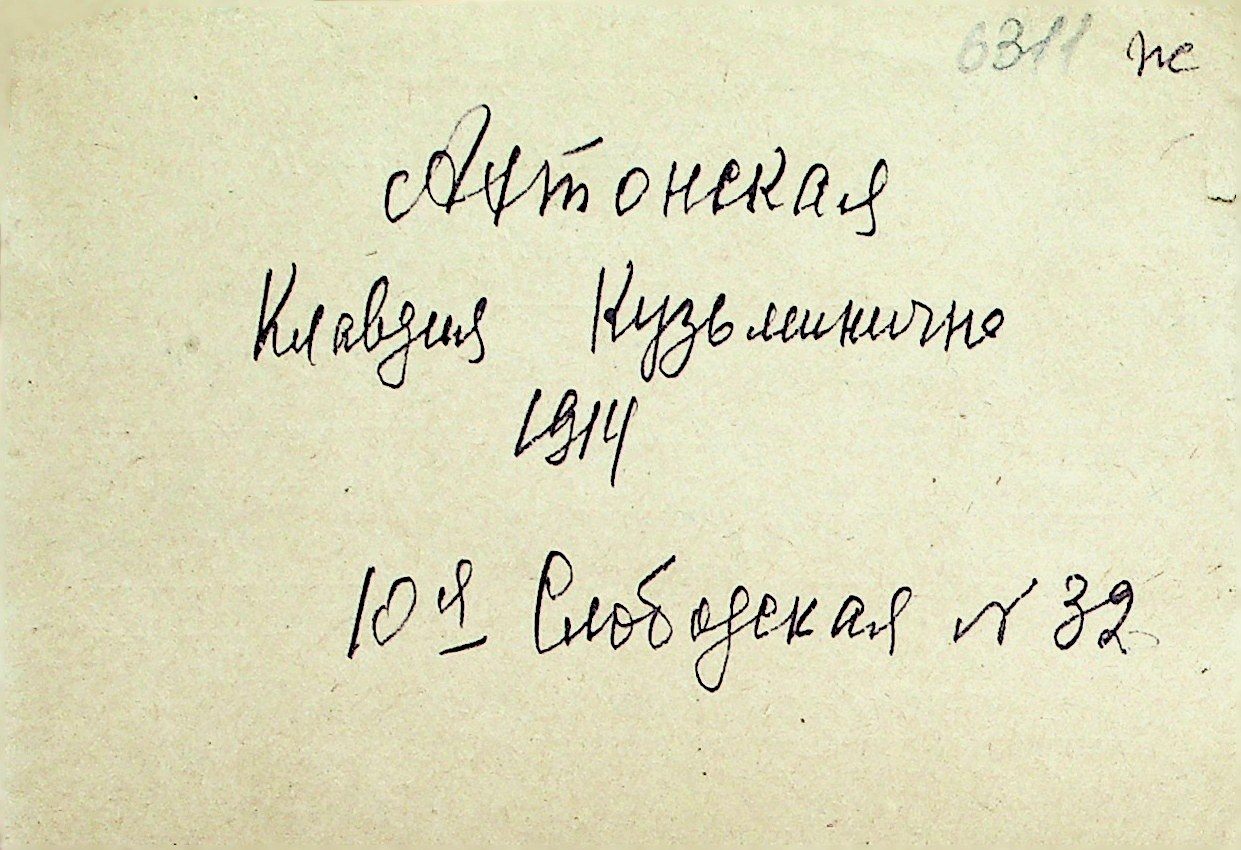 6311 пс
Ахтонская
Клавдия Кузьминична
1914
10я Слободская N 32